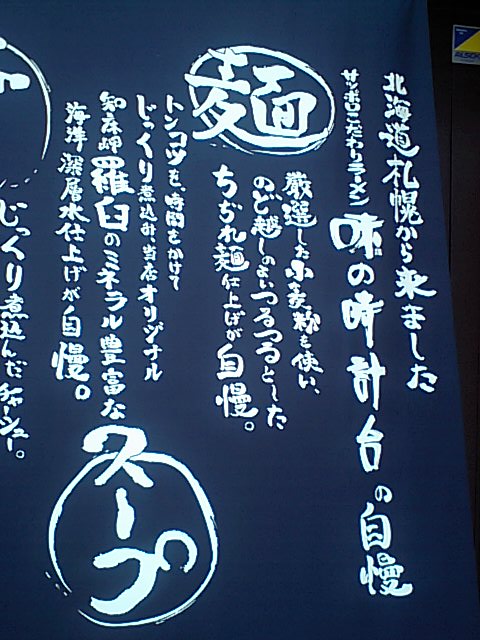 北海道札幌から来ました
サッポロこだわりラーメン
味の時計台の自慢
麺
厳選した小麦粉を使い、
のど越しのよいつるつるとした
ちぢれ麺仕上げが自慢。
トンコツを、時間をかけて
じっくり煮込み、当店オリジナル
知床岬羅臼のミネラル豊富な
海洋深層水仕上げが自慢。
スープ
じっくり煮込んだチャーシュー。